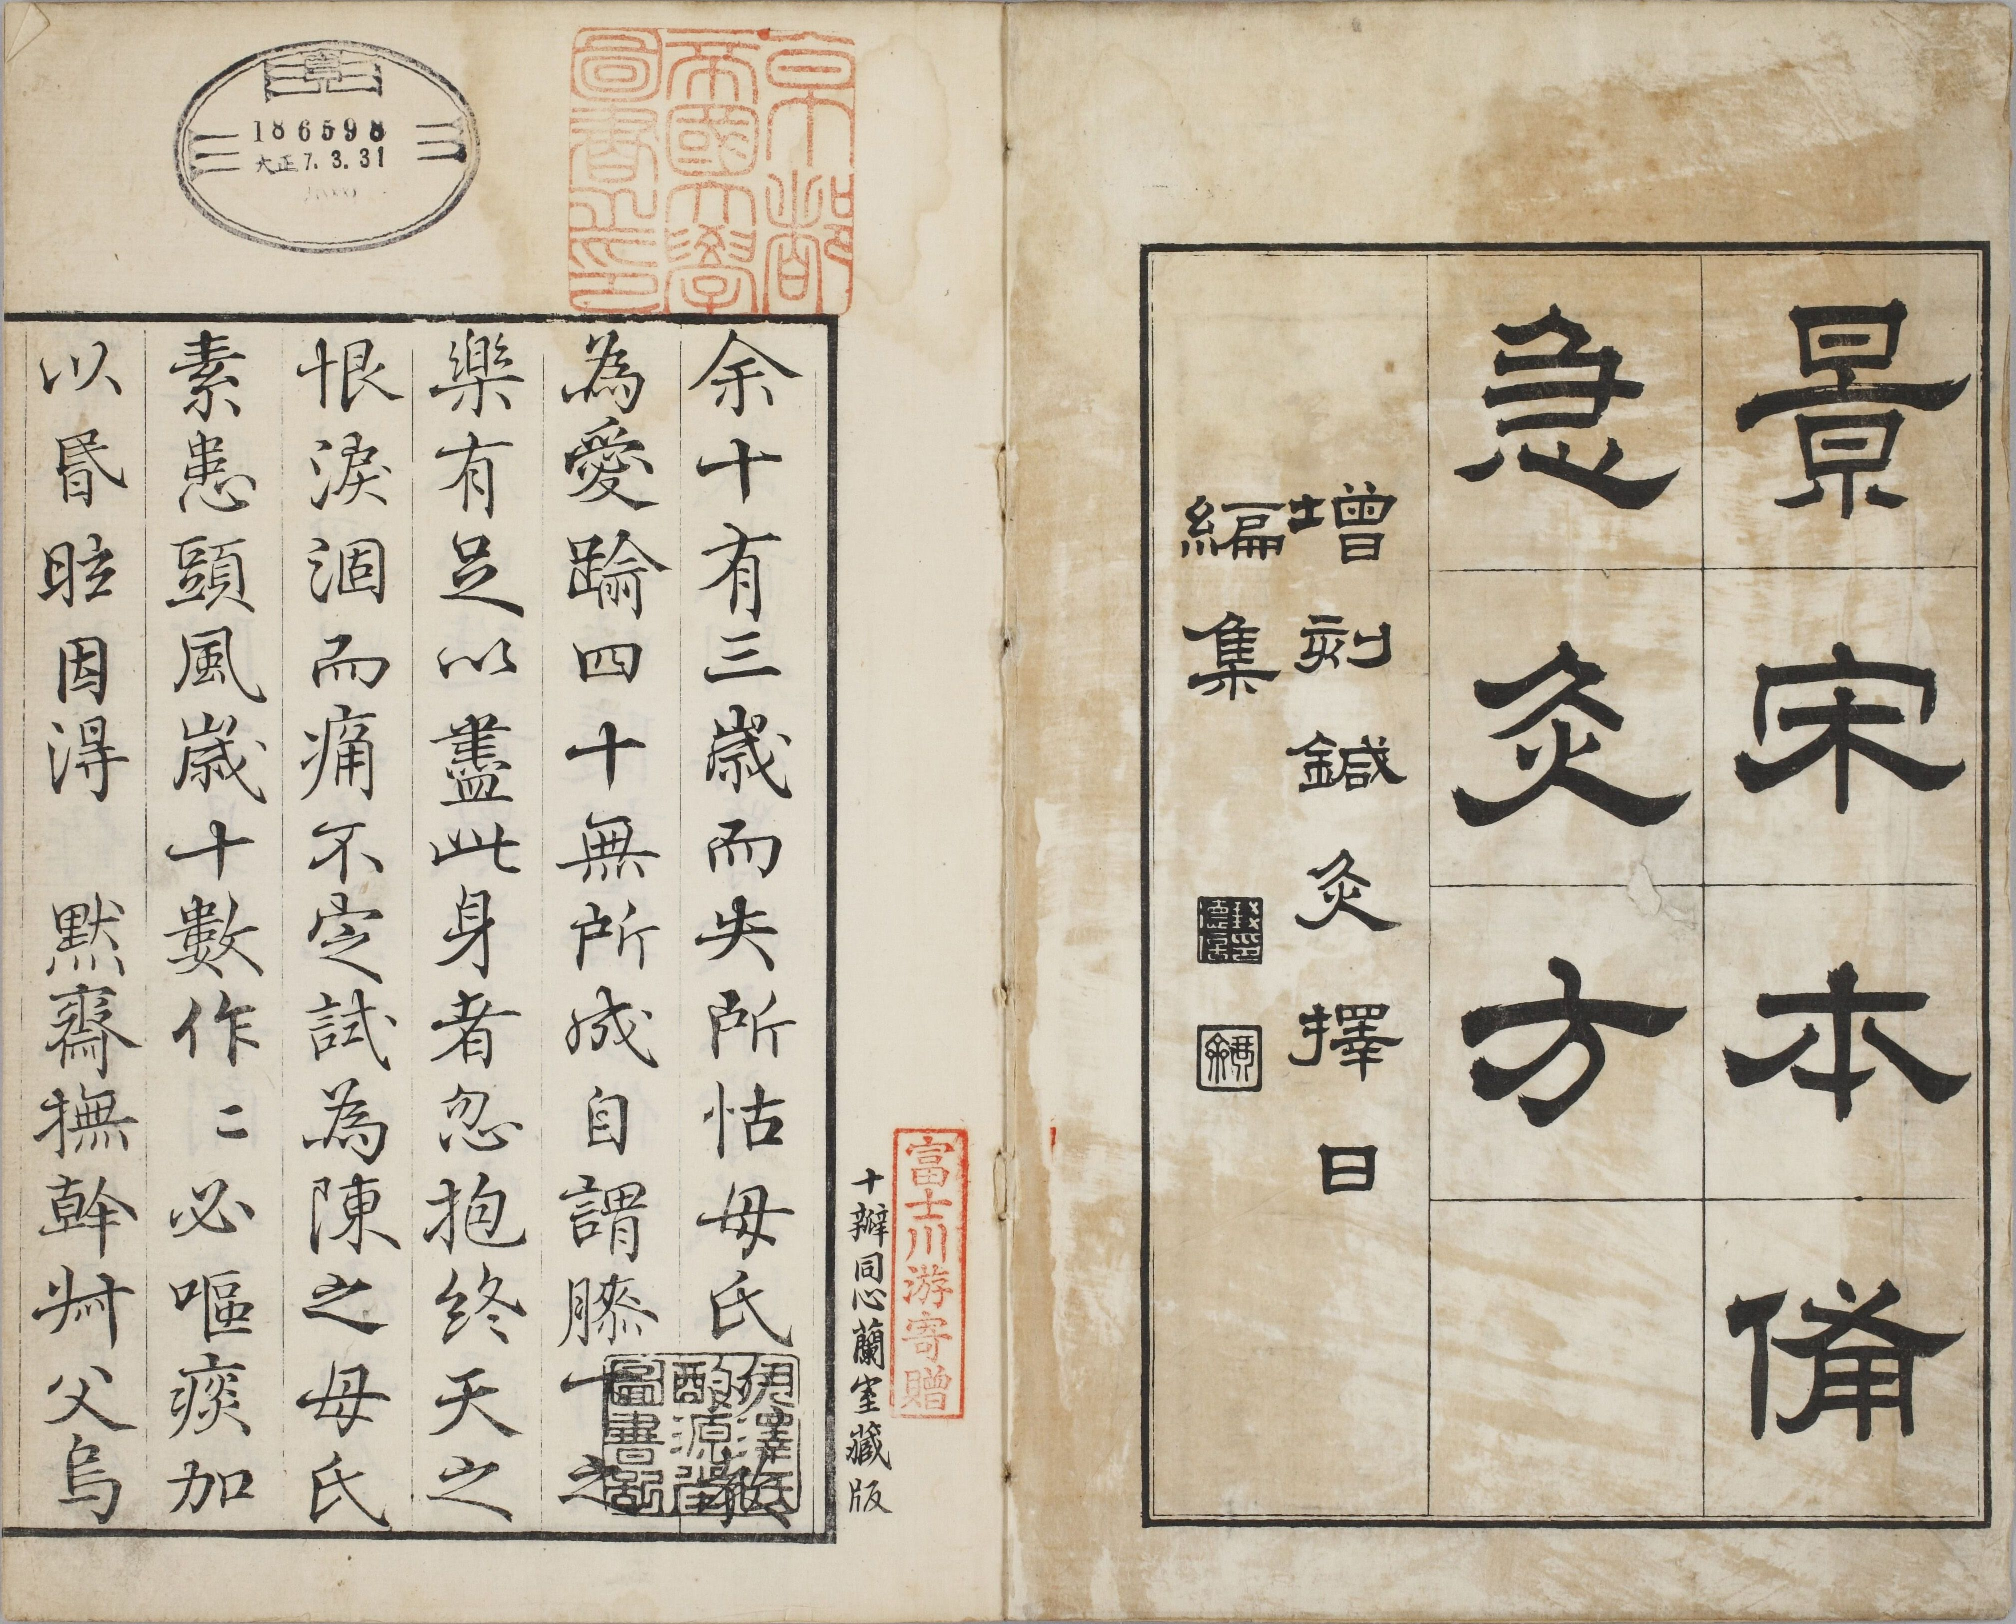 景宋本備
急灸方
增刻鍼灸擇日
編集
富士川游寄贈
十瓣同心蘭室藏版
京都
帝國大學
圖書之印
186598
大正7.3.31
余十有三歲而失所怙母氏
為愛踰四十無所成自謂膝下之
樂有足以盡此身者忽抱終天之
恨淚涸而痛不定試為陳之母氏
素患頭風歲十數作二必嘔痰加
以昏眩因得　默齋撫幹叔父烏